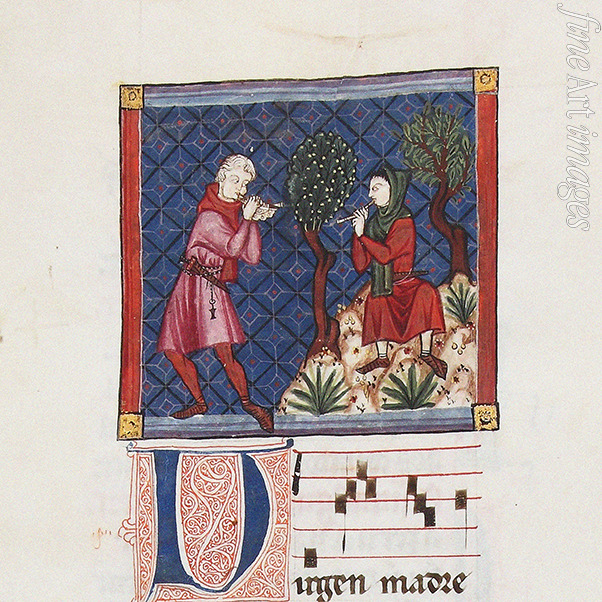 fineArtimages
V
irgen madre